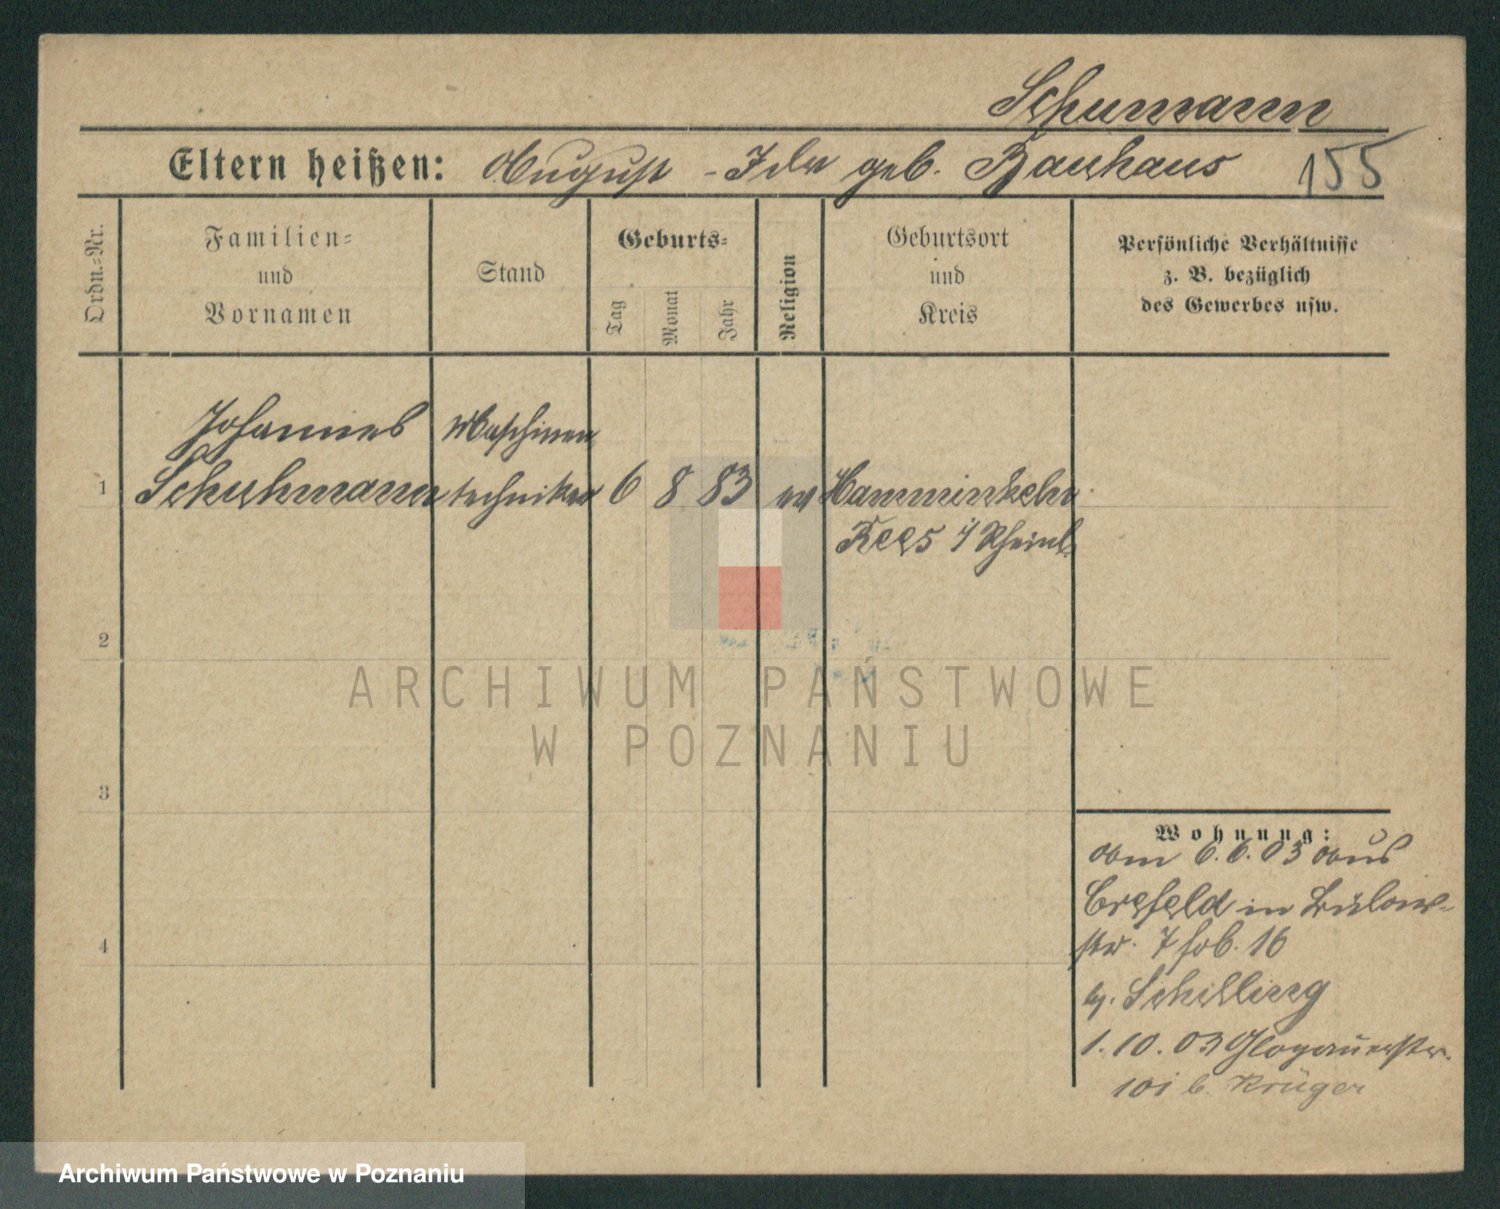 Schumann
Eltern heißen: August - Ida geb. Bauhaus 155
Ordn.-Nr.
Familien- und Vornamen
Stand
Geburts-
Tag
Monat
Jahr
Religion
Geburtsort und Kreis
Persönliche Verhältnisse
z. B. bezüglich
des Gewerbes usw.
Johannes Maschinen
1 Schuhmann techniker 6 8 83 ev Hamminkeln
Rees i/ Rheinl.
2
3
4
Wohnung:
am 6.6.03 aus
Crefeld in Bülow-
str. 7 16
Schilling
1.10.03 Glogauerstr.
101 b. Krüger
ARCHIWUM PAŃSTWOWE
W POZNANIU
Archiwum Państwowe w Poznaniu